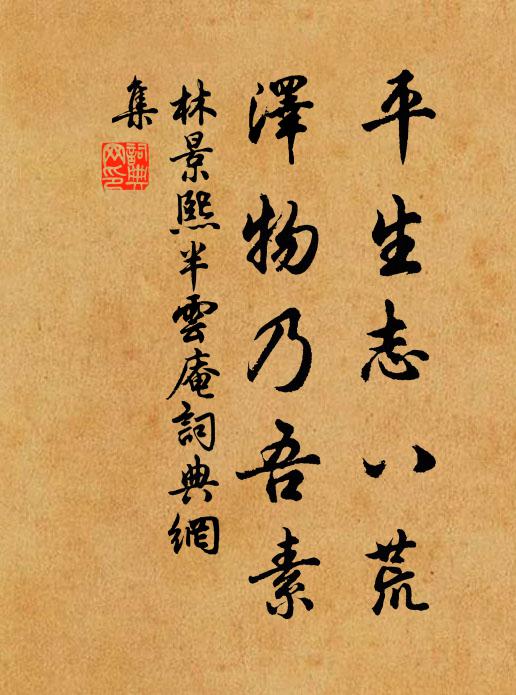 平生志八荒
澤物乃吾素
林景熙半雲庵詞典網
集
詞典
网印